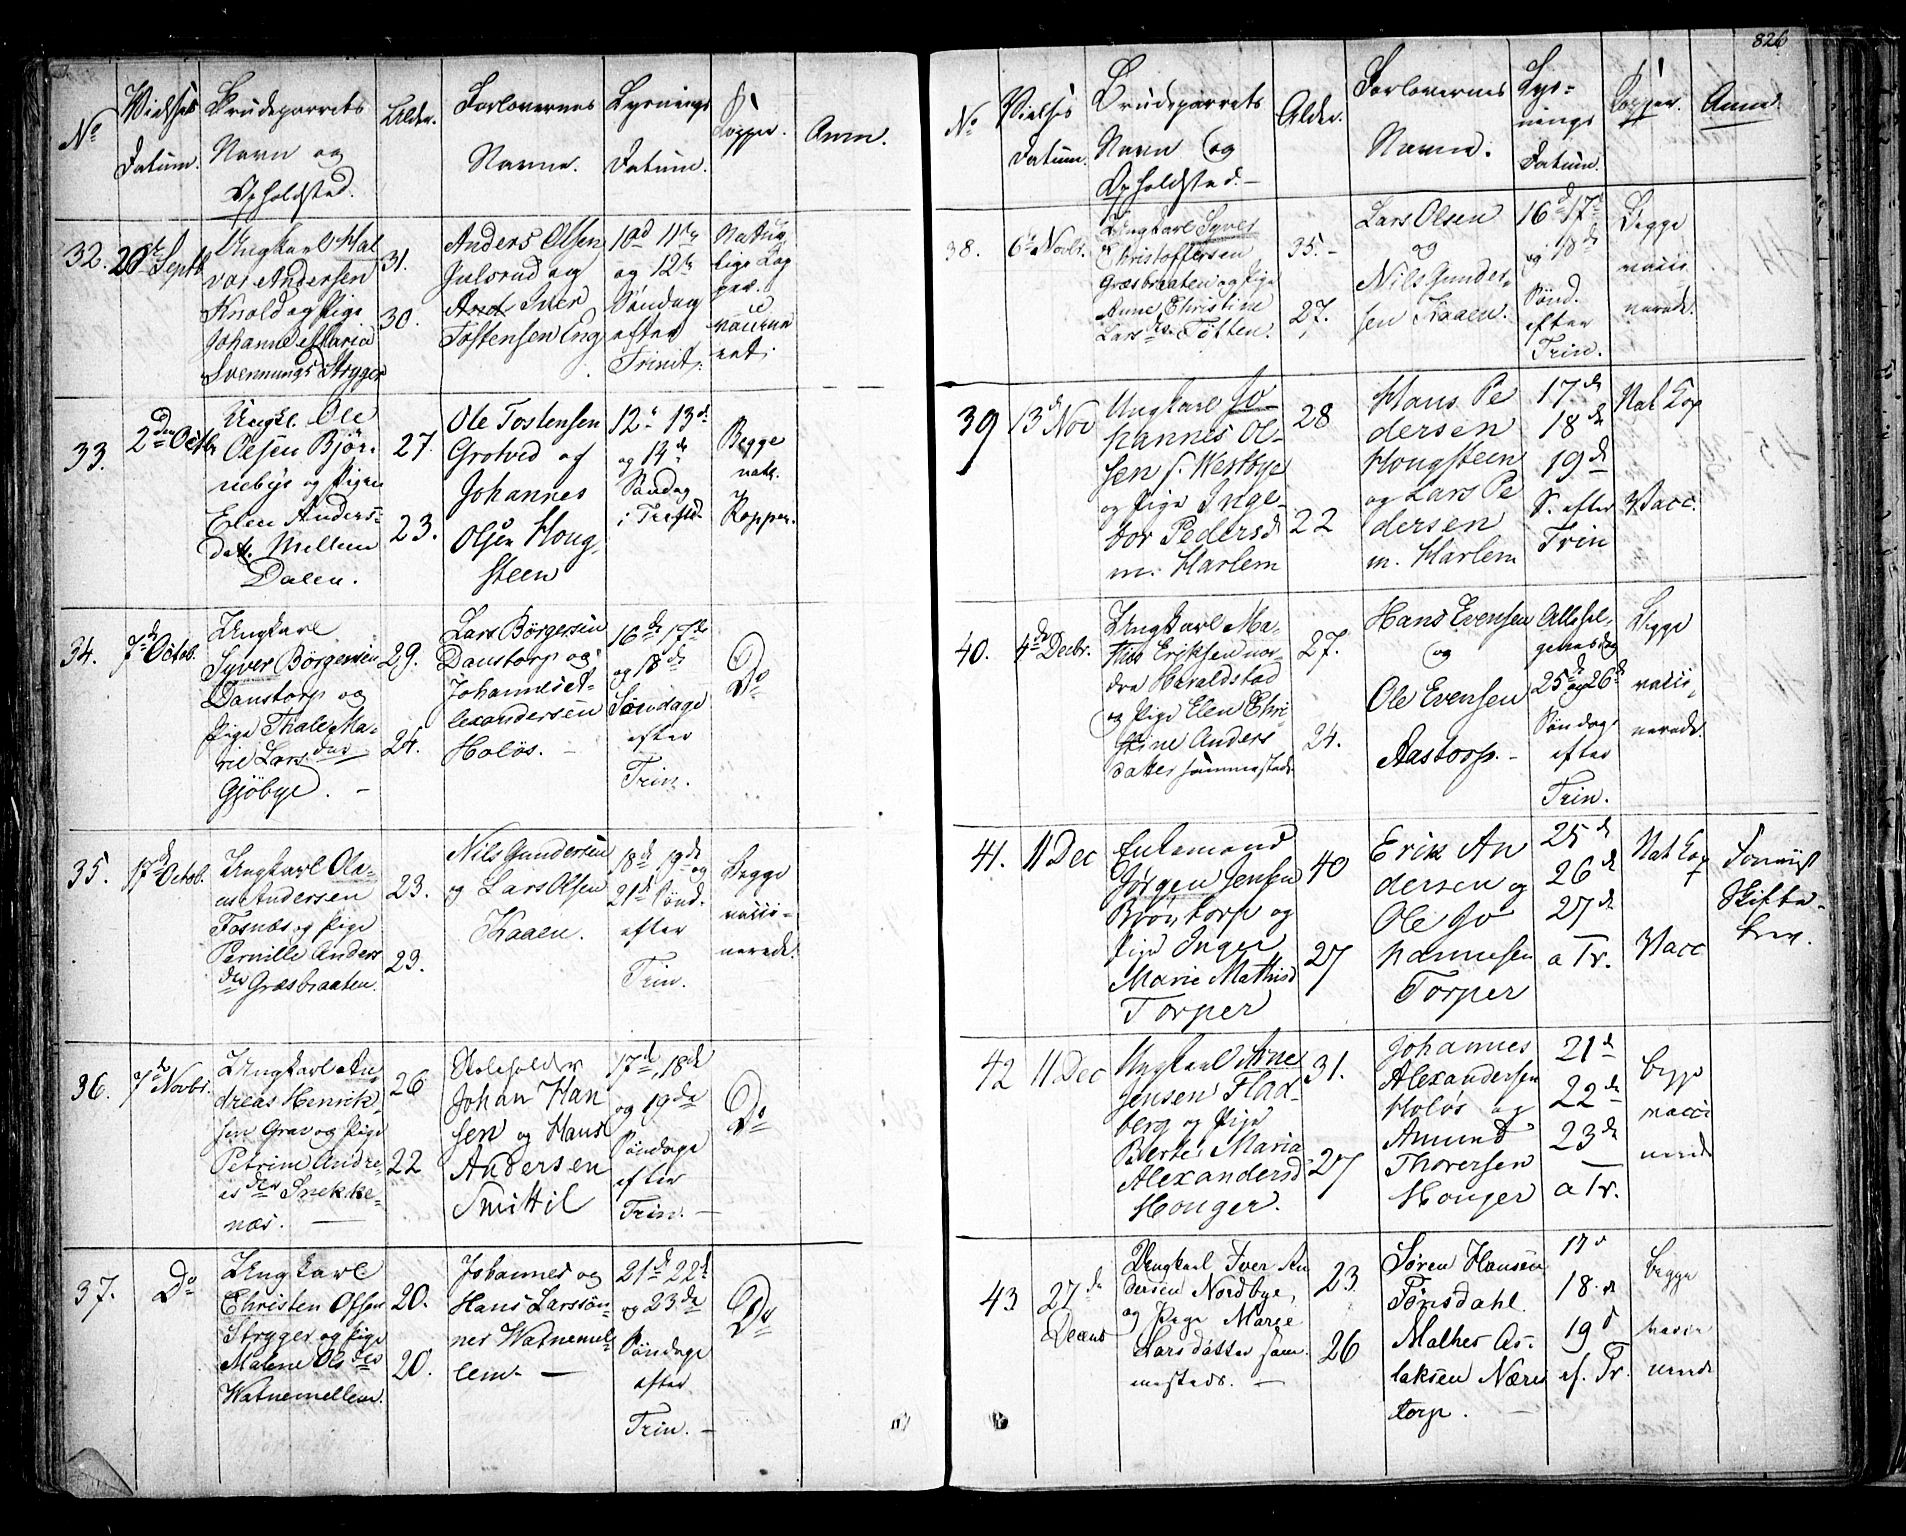 No
Vielses
Datum.
Brudeparrets
Navn og
Opholdsted.
Alder.
Forlovernes
Navne.
Lysnings
Datum.
Kopper.
Anm.
32.
Septb.
Ungkarl Hal
vor Andersen
Knold og Pige
Johanne Maria
Svennungsd Stryger
31.
30.
Anders Olsen
Julsrud og
Iver
Tostensen Eng
10d 11te
og 12te
Søndag
efter
Trinit:
Natur
lige Kop
per.
33.
2den Octbr
Ungk. Ole
Olsen Bjør-
nebye og Pigen
Elen Anders-
datt. Mellem
Dalen.
27.
23.
Ole Tostensen
Grotved og
Johannes
Olsen Houg-
steen
12te 13de
og 14de
Søndag
Begge
nat.
Kopper.
34.
7de Octob.
Ungkarl
Syver Børgersen
Danstorp og
Pige Thale Ma-
rie Lars dtr
Gjöbye. -
29.
24.
Lars Börgersen
Danstorp og
Johannes A-
lexandersen
Holös. -
16de 17de
og 18de
Söndage
efter
Trin.
Do
35.
17de Octob.
Ungkarl Ola-
us Andersen
Fosnæs og Pige
Pernille Anders
der Græsbraaten.
23.
29.
Nils Gundersen
og Lars Olsen
Kaaen.
18de 19de og
21de Sönd.
efter
Trin.
Begge
vacci-
nerede.
36.
7de Novbr.
Ungkarl An-
dreas Henrik-
sen Grav og Pige
Petrine Andre-
as der Snekke-
næs. -
26
22
Skoleholder
Johan Han
sen og Hans
Andersen
Smittil
17de, 18de
og 19de
Söndage
efter
Trin. -
Do
37.
Do
Ungkarl
Christen Olsen
Stryger og Pige
Malene Ols der
Watnemellem.
20.
20.
Johannes og
Hans Larssön-
ner Watnemel-
lem. -
21de 22de
og 23de
Söndage
efter
Trin. -
Do
826
No
Vielses
Datum.
Brudeparrets
Navn og
Opholdsted. -
Alder.
Forlovernes
Navne.
Lys-
nings
Datum.
Kopper.
Anm.
38.
6te Novbr.
Ungkarl Syver
Christoffersen
Græsbraaten og Pige
Anne Christine
Lars der Tötten.
35. -
27.
Lars Olsen
og
Nils Gunder-
sen Kaaen.
16de 17de
og 18de
Sönd.
efter
Trin.
Begge
vacci-
nerede.
39
13de Nov
Ungkarl Jo-
hannes Ol-
sen s. Westbye
og Pige Inge-
bor Pedersd
m. Harlem
28
22
Hans Pe
dersen
Hougsteen
og Lars Pe
dersen
m. Harlem
17de
18de
19de
S. efter
Trin
Nat Kop
Vacc.
40.
4de Decbr.
Ungkarl Ma-
this Eriksen nor-
dre Haraldstad
og Pige Elen Chri-
stine Anders
datter sammesteds.
27.
24.
Hans Evensen
og
Ole Evensen
Aastorp. -
Allehel-
gensdag
25de og 26de
Söndag
efter
Trin.
Begge
vacci-
nerede.
41.
11 Dec
Enkemand
Jørgen Jensen
torp og
Pige Inger
Marie Mathisd
Torper
40
27
Erik An
dersen og
Ole Jo
hannesen
Torper
25de
26de
27de
a Tr.
Nat Kop
Vacc
Forevist
Skifte-
brev.
42
11 Dec
Ungkarl Arne
Jensen Flad-
berg og Pige
Berte Maria
Alexandersd
Houger.
31.
27
Johannes
Alexandersen
Holös og
Amund
Thoresen
Houger
21de
22de
23de
a Tr.
begge
vacci
nerede
43
27de
Decemb
Ungkarl Iver An
dersen Nordbye,
og Pige Marie
Larsdatter sam-
mesteds. -
23
26
Søren Hansen
Tönsdahl.
Mathes As-
laksen Næres
torp. -
17d
18.de
19d
ef. Tr.
begge
vacci
nerede